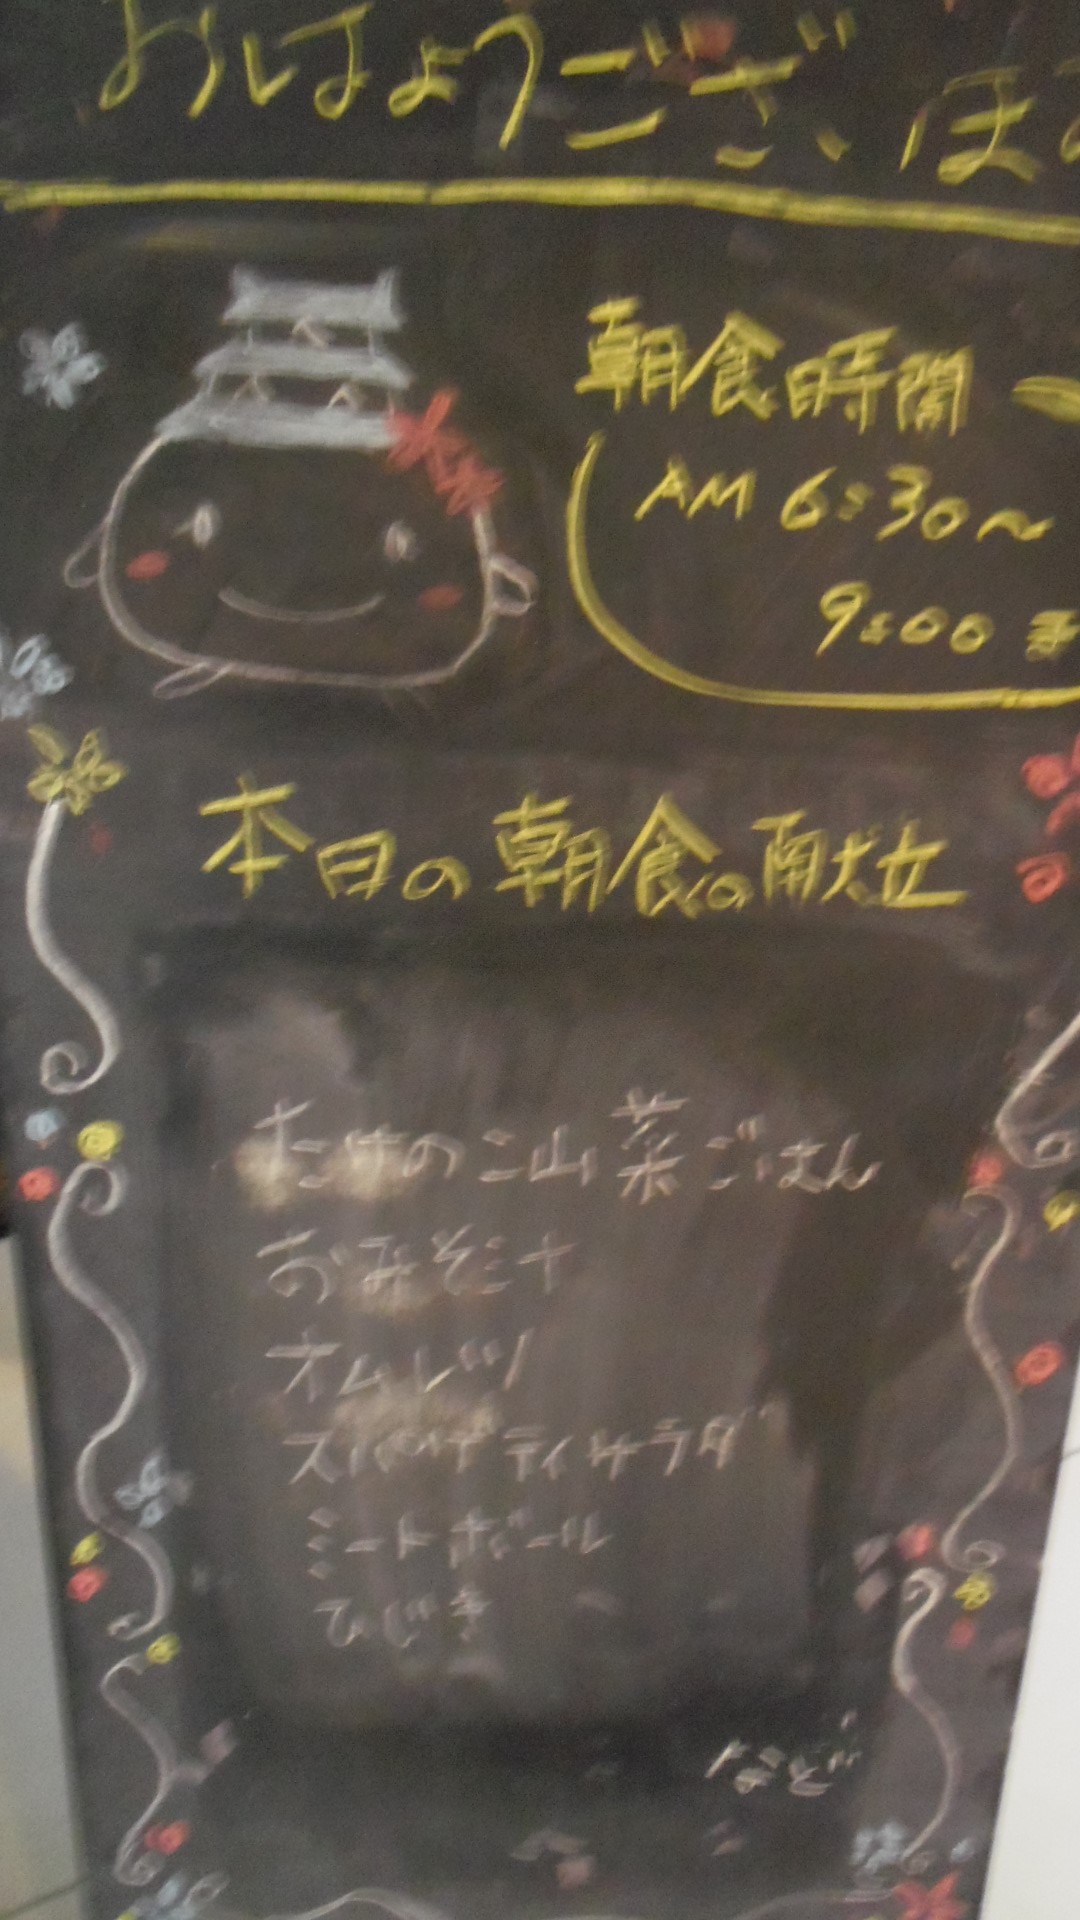 おはようござ、ほ
朝食時間
AM 6:30～
9:00 ま
本日の朝食の献立
たけのこ山菜ごはん
おみそ汁
オムレツ
スパゲティサラダ
ミートボール
ひじき
など